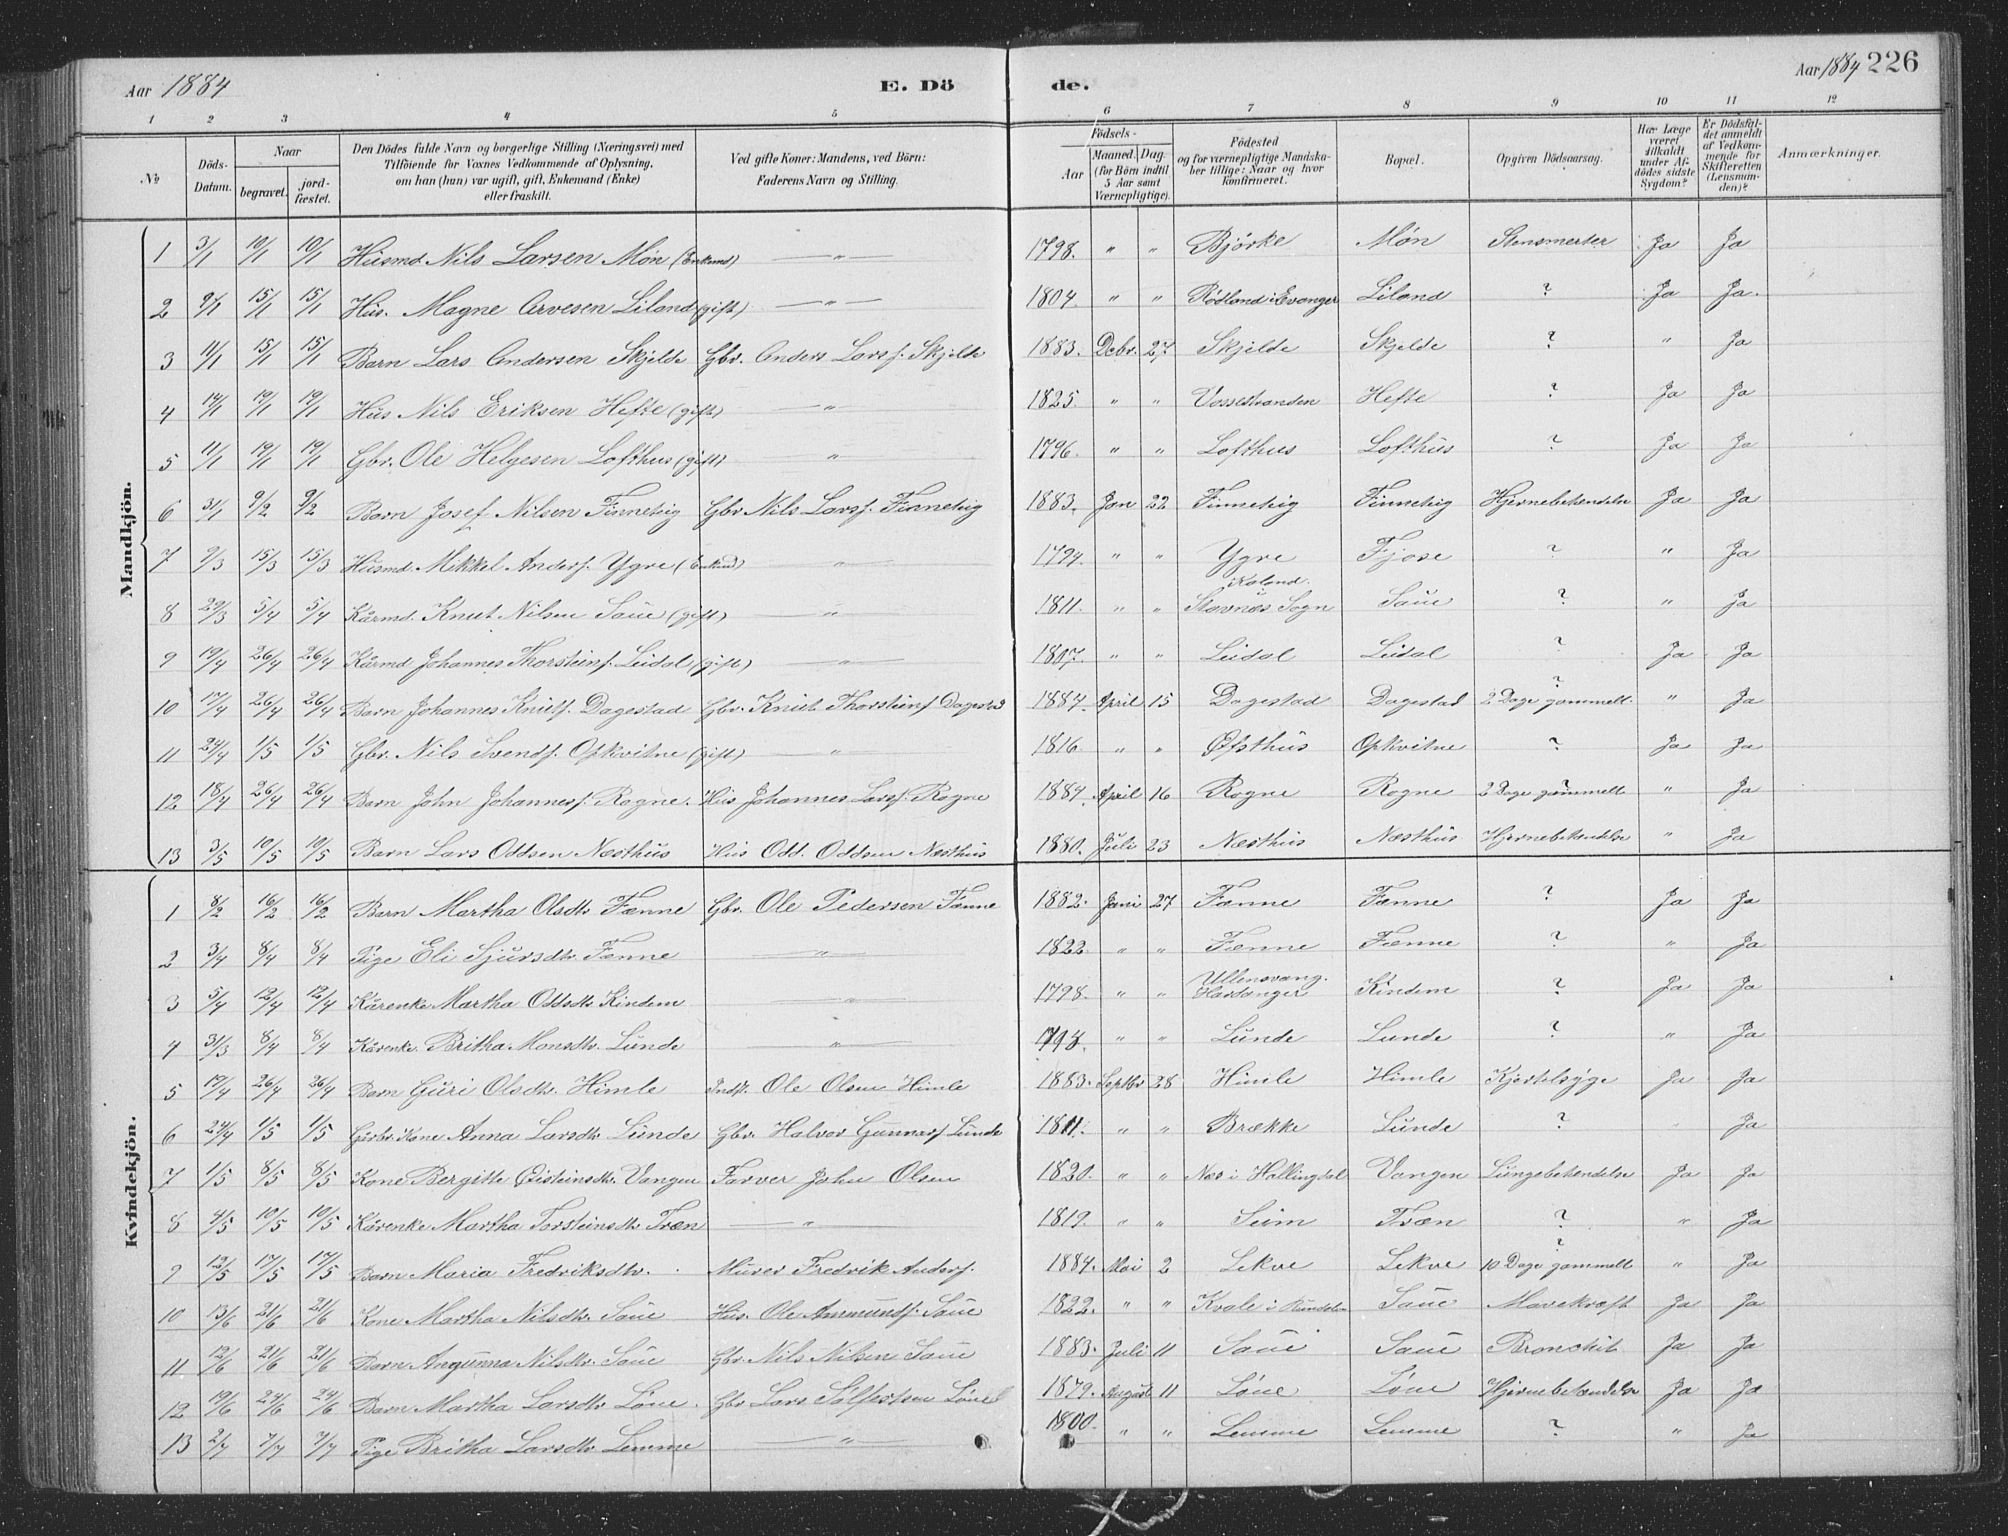 Aar 1884
E. Dö
de.
Aar 1884
226
1 2 3 4 5
6 7 8 9 10 11 12
№
Döds-
Datum.
Naar
begravet.
jord-
fæstet.
Den Dödes fulde Navn og borgerlige Stilling (Næringsvei) med
Tilföiende for Voxnes Vedkommende af Oplysning,
om han (hun) var ugift, gift, Enkemand (Enke)
eller fraskilt.
Ved gifte Koner: Mandens, ved Börn:
Faderens Navn og Stilling.
Födsels-
Aar
Maaned. Dag.
(for Börn indtil
5 Aar samt
Værnepligtige).
Födested
og for værnepligtige Mandska-
ber tillige: Naar og hvor
konfirmeret.
Bopæl.
Opgiven Dödsaarsag.
Har Læge
været
tilkaldt
under Af-
dødes sidste
Sygdom?
Er Dödsfal-
det anmeldt
af Vedkom-
mende for
Skifteretten
(Lensman-
den)?
Anmærkninger.
Mandkjön.
1 3/1 10/1 10/1 Husmd. Nils Larsen Møn (Enkemd) — " — 1798. " " Bjørke Møn Stensmerter Ja Ja
2 9/1 15/1 15/1 Hus. Magne Arvesen Liland (gift) — " — 1804. " " Rødland i Evanger Liland ? Ja Ja.
3 11/1 15/1 15/1 Barn Lars Andersen Skjelde Gbr. Anders Larss. Skjelde 1883. Debr. 27 Skjelde Skjelde ? " Ja
4 14/1 19/1 19/1 Hus Nils Eriksen Hefte (gift) — " — 1825. " " Vossestranden Hefte ? Ja Ja
5 11/1 19/1 19/1 Gbr. Ole Helgesen Lofthus (gift) " 1796. " " Lofthus Lofthus ? Ja Ja
6 31/1 9/2 9/2 Barn Josef Nilsen Finnetvig Gbr Nils Larss. Finnetvig 1883. Jan 22 Finnetvig Finnetvig Hjernebetændelse Ja Ja
7 9/3 15/3 15/3 Husmd. Mikkel Anders. Ygre (Enkmd) — " — 1794. " " Ygre Fjose ? " Ja
8 29/3 5/4 5/4 Kårmd. Knut Nilsen Saue (gift) — " — 1811. " " Kaland i Stavnæs Sogn Saue ? " Ja
9 19/4 26/4 26/4 Kårmd Johannes Thorsteins. Leidal (gift) — " — 1807. " " Leidal Leidal ? Ja Ja
10 17/4 26/4 26/4 Barn Johannes Knuts. Dagestad Gbr. Knut Thorsteins. Dagestad 1884. April 15 Dagestad Dagestad ? 2 Dage gammelt. " Ja
11 24/4 1/5 1/5 Gbr. Nils Svends. Opkvitne (gift) — " — 1816. " " Øfsthus Opkvitne ? Ja Ja
12 18/4 26/4 26/4 Barn John Johanness. Rogne. Hus Johannes Larss. Rogne 1884. April 16 Rogne Rogne ? 2 Dage gammelt " Ja
13 3/5 10/5 10/5 Barn Lars Oddsen Næsthus Hus Odd. Oddsen Næsthus 1880. Juli 23 Næsthus Næsthus Hjernebetændelse " Ja
Kvindekjön.
1 8/2 16/2 16/2 Barn Martha Olsdtr. Fænne Gbr. Ole Pedersen Fænne 1882. Juni 27 Fænne Fænne ? Ja Ja
2 3/4 8/4 8/4 Pige Eli Sjursdtr. Fænne — " — 1822. " " Fænne Fænne ? " Ja
3 5/4 12/4 12/4 Kårenke Martha Oddsdtr. Kindem — " — 1798. " " Ullensvang. Hardanger Kindem ? Ja Ja
4 31/3 8/4 8/4 Kårenke. Britha Monsdtr. Lunde — " — 1793. " " Lunde Lunde ? " Ja
5 19/4 26/4 26/4 Barn Guri Olsdtr. Himle Inds. Ole Olsen Himle 1883. Septbr 28 Himle Himle Kjertelsyge Ja Ja
6 24/4 1/5 1/5 Kone Anna Larsdtr. Lunde Gbr. Halvor Gunnars. Lunde 1811. " " Brække Lunde ? Ja
7 1/5 8/5 8/5 Kone Bergitte Øisteinsdtr. Vangen Farver John Olsen 1820. " " Næs i Hallingdal Vangen Lungebetændelse Ja Ja
8 4/5 10/5 10/5 Kårenke Martha Torsteinsdtr. Træn — " 1819. " " Seim Træn ? " Ja
9 12/5 17/5 17/5 Barn Maria Fredriksdtr. Murer Fredrik Anders. 1884. Mai 2 Lekve Lekve ? 10 Dage gammelt " Ja
10 13/6 21/6 21/6 Kone Martha Nilsdtr. Saue Hus. Ole Ammunds. Saue 1822. " " Kvale i Saue Mavekræft Ja Ja
11 12/6 21/6 21/6 Barn Angunna Nilsdtr. Saue Gbr. Nils Nilsen Saue 1883. Juli 11 Saue Saue Bronchit Ja Ja
12 19/6 24/6 24/6 Barn Martha Larsdtr. Løne. Gbr Lars Løne 1879. August 11 Løne Løne Hjernebetændelse Ja Ja
13 2/7 7/7 7/7 Pige Britha Larsdtr. Lemme — " — 1800. " " Lemme Lemme ? " Ja